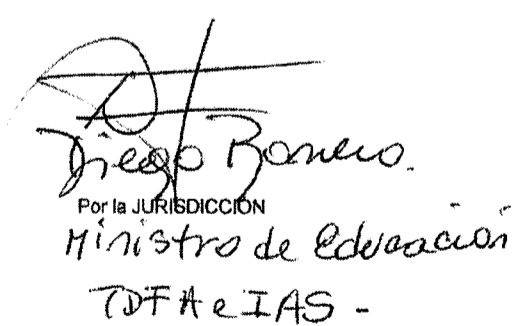 Diego Romero.
Por la JURISDICCIÓN
Ministro de Educación
TDFAeIAS -